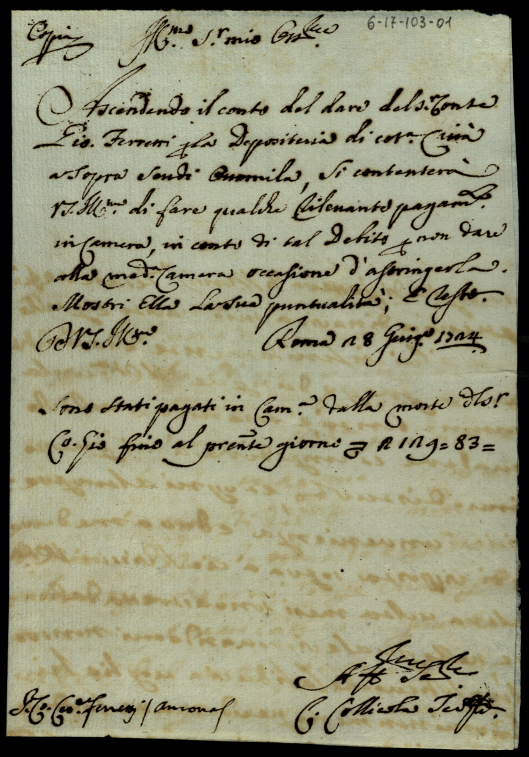 6-17-103-01
Copia
Ill.mo S.r mio
Ascendendo il conto del dare del S.r Conte
Gio. Ferretti p la Depositeria di cot.a Città
a sopra scudi, si contenterà
V.S. Ill.ma di fare qualche rilevante pagam.to
in Camera, in conto di tal Debito p non dare
alla med.a Camera occasione d'astringerla.
Mostri Ella la sua puntualità; E resto.
Di V.S. Ill.ma Roma 28 Giug.o 1724.
Sono stati pagati in Cam.a dalla morte del S.r
Co. Gio fino al prente giorno 1129=83=
Aff.
C. Collicola
S.r Co. Ferretti / Ancona /